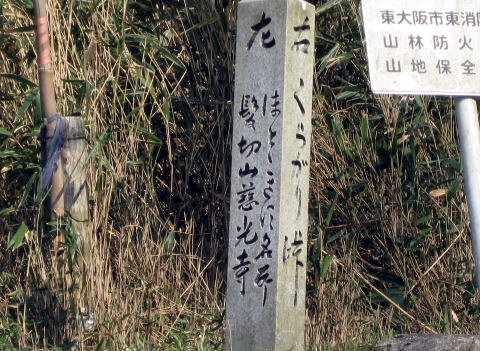 右 くらがり峠
左
ほとゝぎす名所
髪切山慈光寺
東大阪市東消
山林防火
山地保全